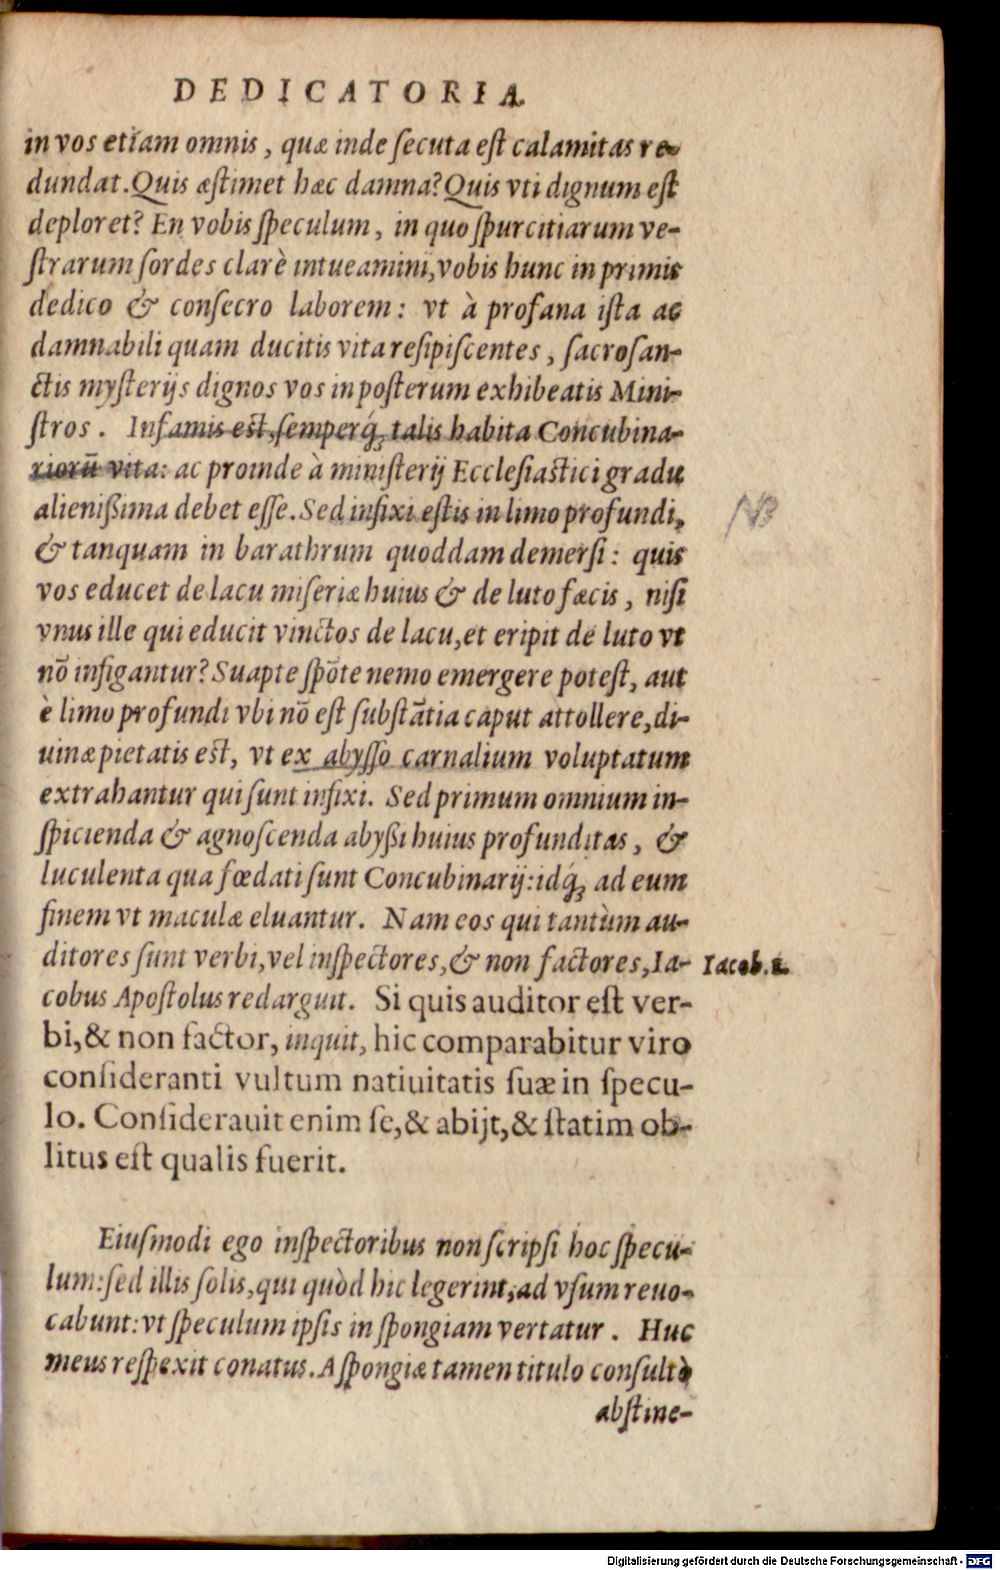 DEDICATORIA.
in vos etiam omnis, quæ inde ſecuta eſt calamitas re-
dundat. Quis æſtimet hæc damna? Quis vti dignum eſt
deploret? En vobis ſpeculum, in quo ſpurcitiarum ve-
ſtrarum ſordes clarè intueamini, vobis hunc in primis
dedico & conſecro laborem: vt à profana iſta ac
damnabili quam ducitis vita reſipiſcentes, ſacroſan-
ctis myſterijs dignos vos in poſterum exhibeatis Mini-
ſtros. Infamis eſt, ſemperq́; talis habita Concubina-
riorū vita: ac proinde à miniſterij Eccleſiaſtici gradu
alienißima debet eſſe. Sed infixi eſtis in limo profundi,
NB
& tanquam in barathrum quoddam demerſi: quis
vos educet de lacu miſeriæ huius & de luto fæcis, niſi
vnus ille qui educit vinctos de lacu, et eripit de luto vt
nō infigantur? Suapte ſpōte nemo emergere poteſt, aut
è limo profundi vbi nō eſt ſubſtātia caput attollere, di-
uinæ pietatis eſt, vt ex abyſſo carnalium voluptatum
extrahantur qui ſunt infixi. Sed primum omnium in-
ſpicienda & agnoſcenda abyßi huius profunditas, &
luculenta qua fœdati ſunt Concubinarij: idq́; ad eum
finem vt maculæ eluantur. Nam eos qui tantùm au-
ditores ſunt verbi, vel inſpectores, & non factores, Ia-
Iacob. 1.
cobus Apoſtolus redarguit. Si quis auditor eſt ver-
bi, & non factor, inquit, hic comparabitur viro
conſideranti vultum natiuitatis ſuæ in ſpecu-
lo. Conſiderauit enim ſe, & abijt, & ſtatim ob-
litus eſt qualis fuerit.
Eiuſmodi ego inſpectoribus non ſcripſi hoc ſpecu-
lum: ſed illis ſolis, qui quòd hic legerint, ad vſum reuo-
cabunt: vt ſpeculum ipſis in ſpongiam vertatur. Huc
meus reſpexit conatus. A ſpongiæ tamen titulo conſultò
abſtine-
Digitalisierung gefördert durch die Deutsche Forschungsgemeinschaft - DFG